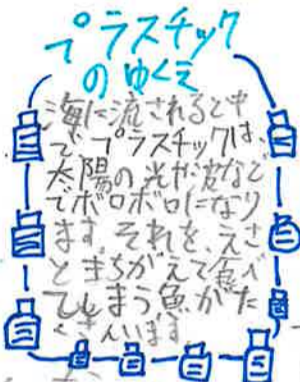 プラスチック
のゆくえ
海に流されると中
で、プラスチックは、
太陽の光や波など
でボロボロになり
ます。それを、えさ
とまちがえて食べ
てしまう魚がた
くさんいます。